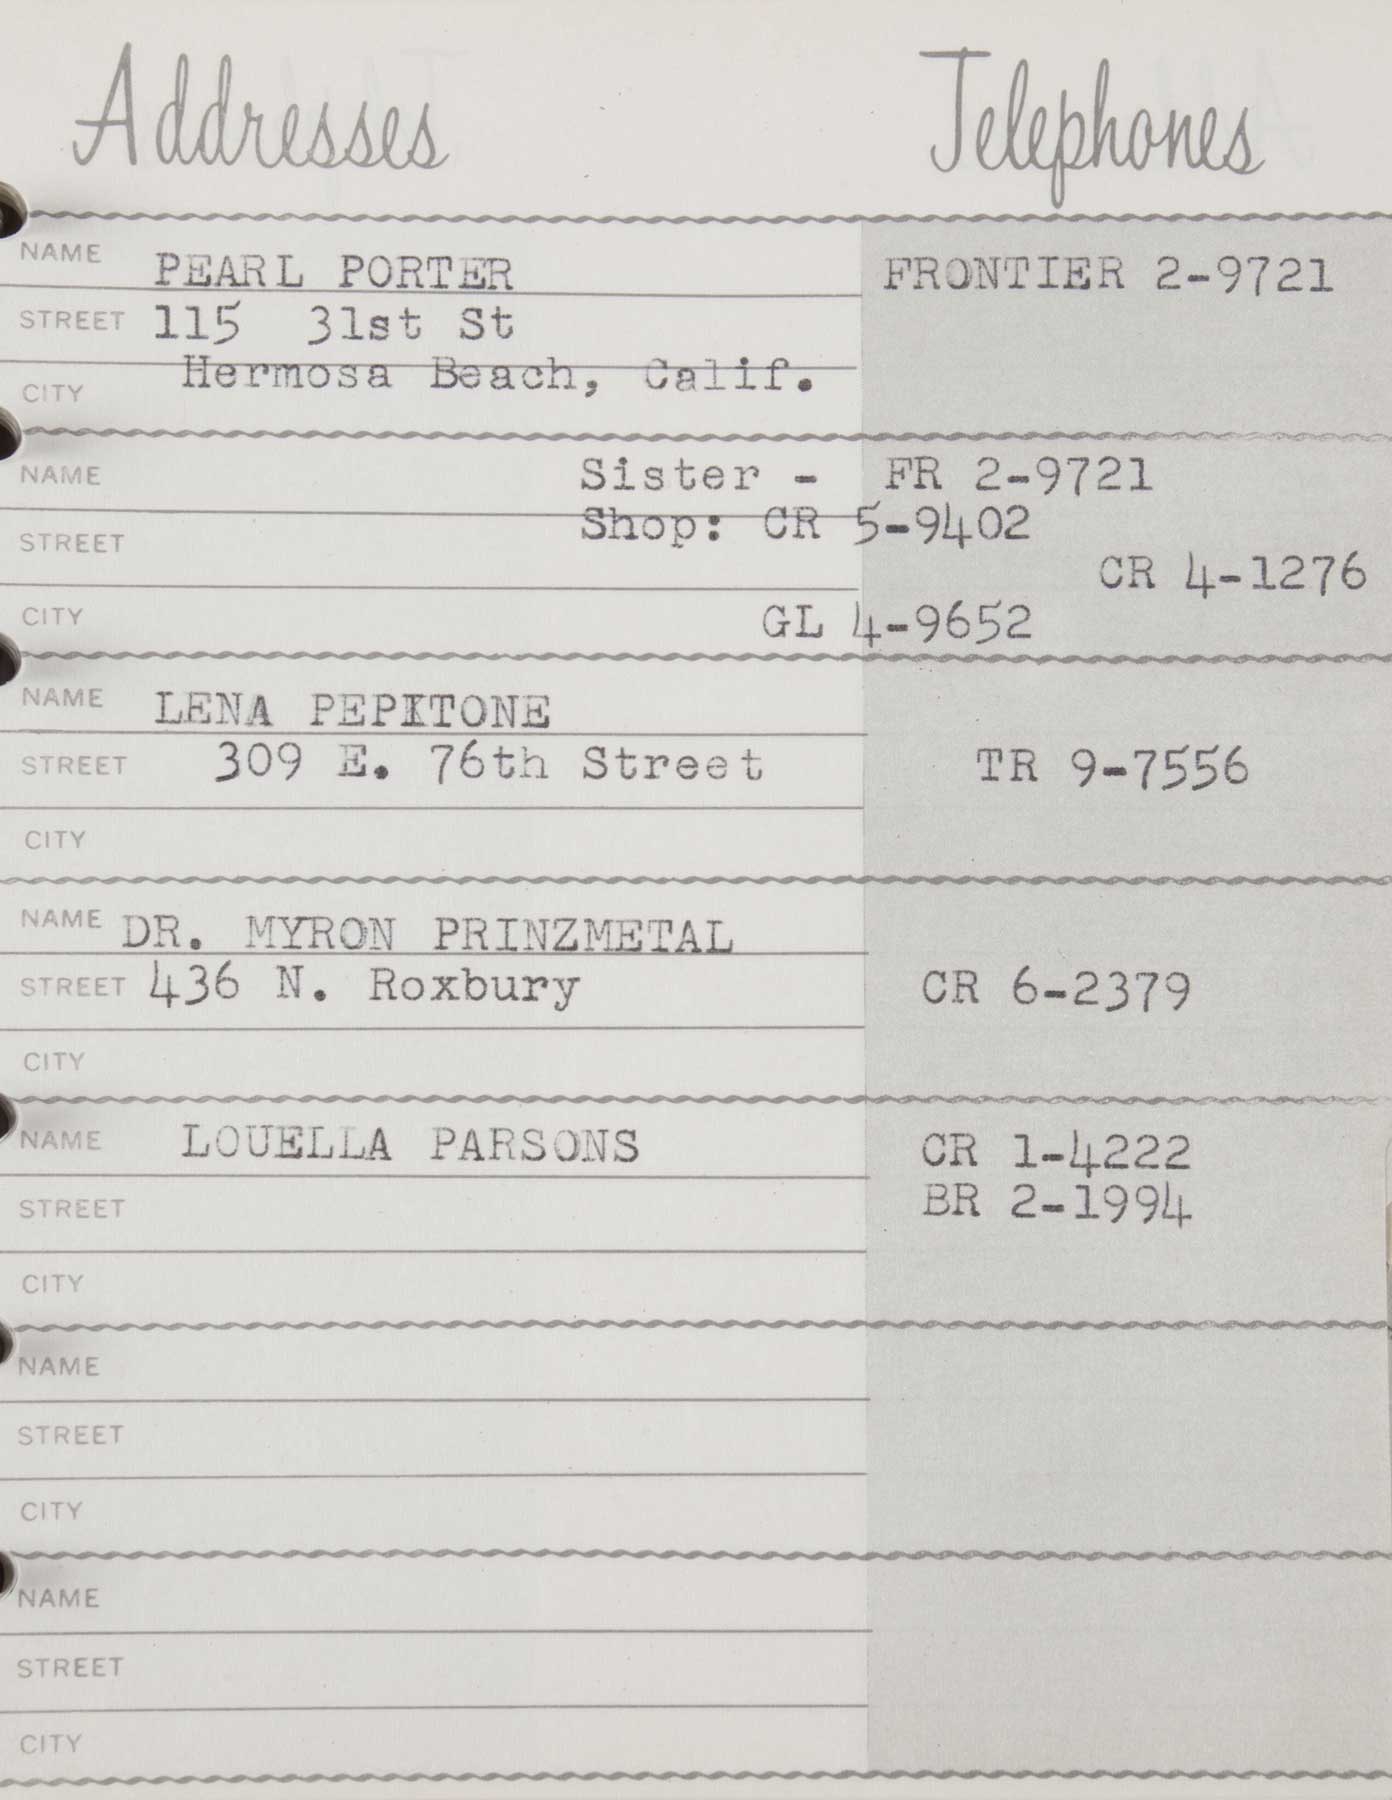 Addresses Telephones
NAME PEARL PORTER FRONTIER 2-9721
STREET 115 31st St
CITY Hermosa Beach, Calif.
NAME Sister - FR 2-9721
Shop: CR 5-9402
STREET CR 4-1276
CITY GL 4-9652
NAME LENA PEPITONE
STREET 309 E. 76th Street TR 9-7556
CITY
NAME DR. MYRON PRINZMETAL
STREET 436 N. Roxbury CR 6-2379
CITY
NAME LOUELLA PARSONS CR 1-4222
STREET BR 2-1994
CITY
NAME
STREET
CITY
NAME
STREET
CITY